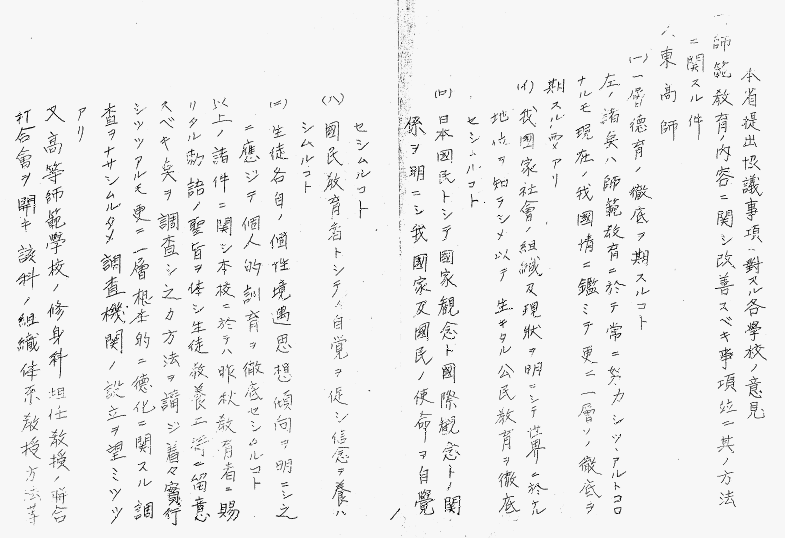 本省提出協議事項ニ對スル各學校ノ意見
一、師範教育ノ内容ニ関シ改善スベキ事項竝ニ其ノ方法
ニ関スル件
八、東高師
(一)一層德育ノ徹底ヲ期スルコト
左ノ諸矣ハ師範教育ニ於テ常ニ努力シツヽアルトコロ
ナルモ現在ノ我國情ニ鑑ミテ更ニ一層ソノ徹底ヲ
期スル要アリ
(イ)我國家社會ノ組織及現狀ヲ明ニシテ世界ニ於ル
地位ヲ知ラシメ以テ生キタル公民教育ヲ徹底
セシムルコト
(ロ)日本國民トシテ國家観念ト國際観念トノ関
係ヲ明ニシ我國家及國民ノ使命ヲ自覺
セシムルコト
(ハ)國民教育者トシテノ自覚ヲ促シ信念ヲ養ハ
シムルコト
(ニ)生徒各自ノ個性境遇思想傾向ヲ明ニシ之
ニ應ジテ個人的訓育ヲ徹底セシムルコト
以上ノ諸件ニ関シ本校ニ於テハ昨秋教育者ニ賜
リタル勅語ノ聖旨ヲ体シ生徒教養上常ニ留意
スベキ矣ヲ調査シ之カ方法ヲ講ジ着々實行
シツツアルモ更ニ一層根本的ニ德化ニ関スル調
査ヲナサシムルタメ調査機関ノ設立ヲ望ミツツ
アリ
又高等師範學校ノ修身科担任教授ノ聯合
打合會ヲ開キ該科ノ組織体系教授方法等